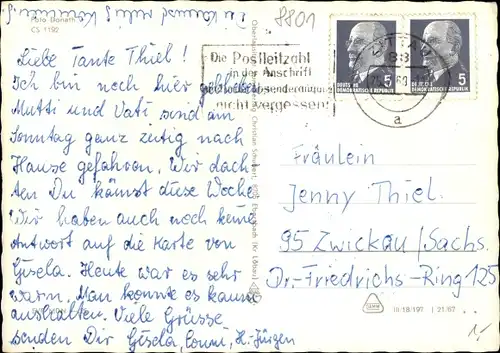 Du kannst ruhig kommen!
8801
Foto Donath
CS 1192
Liebe Tante Thiel!
Ich bin noch hier geblieben
Mutti und Vati sind am
Sonntag ganz zeitig nach
Hause gefahren. Wir dach-
ten Du kämst diese Woche
Wir haben auch noch keine
Antwort auf die Karte von
Gisela. Heute war es sehr
warm. Man konnte es kaum
aushalten. Viele Grüsse
senden Dir Gisela, Conni, H.-Jürgen
Die Postleitzahl
in der Anschrift
und Absenderangabe
nicht vergessen!
ZITTAU
88
a
5
DEUTSCHE
DEMOKRATISCHE REPUBLIK
5
DEUTSCHE
DEMOKRATISCHE REPUBLIK
Christian Schubert, Ebersbach (Kr. Löbau)
Fräulein
Jenny Thiel.
95 Zwickau/Sachs.
Dr.-Friedrichs-Ring 125
III/18/197 21/67
1,-